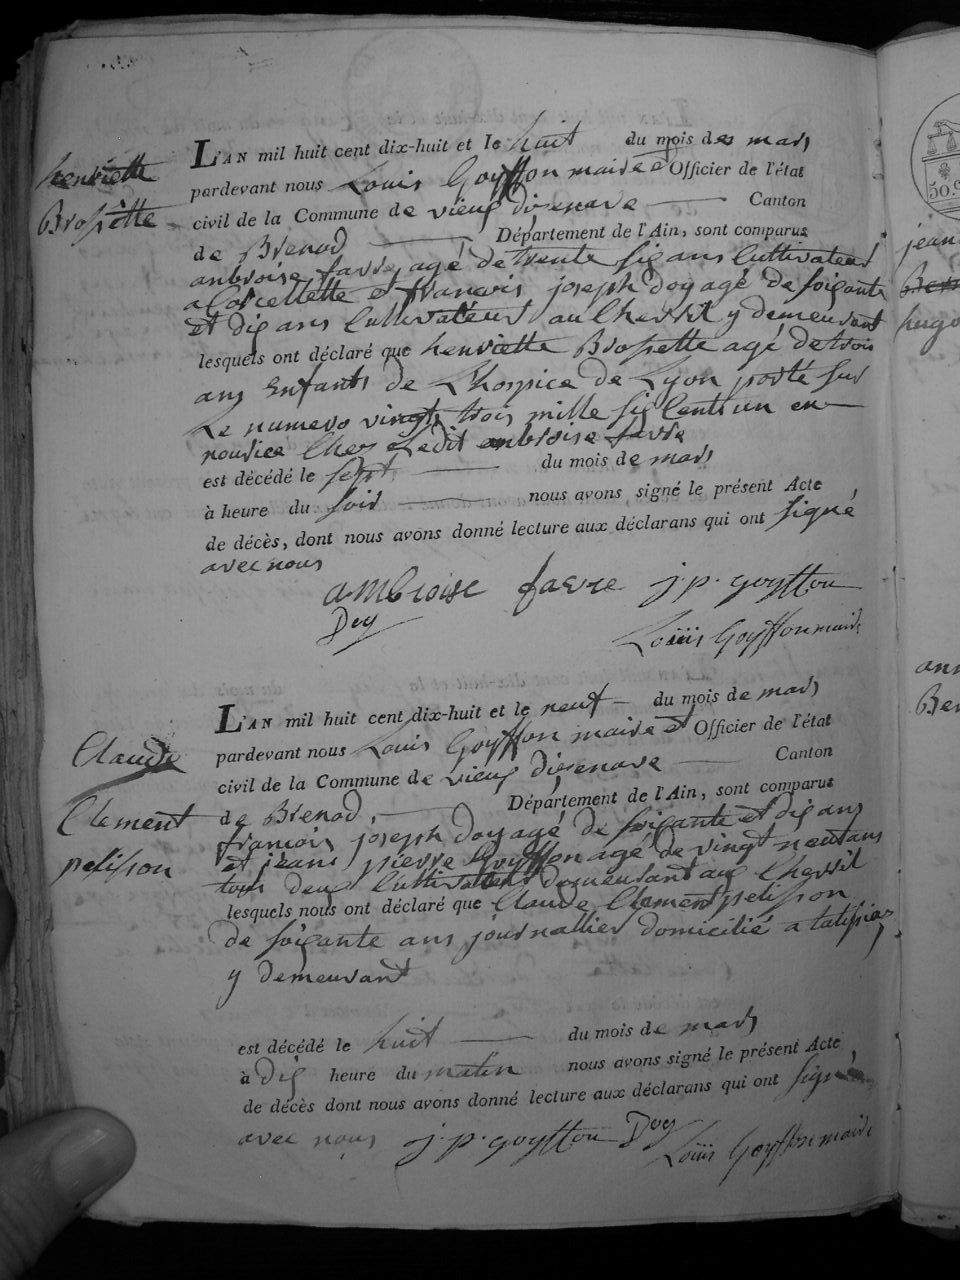 henriette
Brossette
L'AN mil huit cent dix-huit et le huit du mois des mars
pardevant nous Louis Goyffon maire et Officier de l'état
civil de la Commune de vieux dizenave Canton
de Brenod Département de l'Ain, sont comparus
anbroise favre agé de trente six ans Cultivateur
a et francois joseph Doy agé de soixante
et dix ans Cultivateur au Chevril y demeurant
lesquels ont déclaré que henriette Brossette agé de trois
ans Enfants de L'hospice de Lyon porté sur
Le numero vingt trois mille six Cents un en
nourice Chez Ledit anbroise favre
est décédé le sept du mois de mars
à heure du soir nous avons signé le présent Acte
de décès, dont nous avons donné lecture aux déclarans qui ont signé
avec nous
ambroise favre j. p. goyffon
Doy
Louiis Goyffon maire
Claude
Clement
pelisson
L'AN mil huit cent dix-huit et le neuf du mois de mars
pardevant nous Louis Goyffon maire et Officier de l'état
civil de la Commune de vieux dizenave Canton
de Brenod, Département de l'Ain, sont comparus
francois joseph Doy agé de soixante et dix ans
et jeans pierre Goyffon agé de vingt neuf ans
tous deux Cultivateurs demeurant au Chevril
lesquels nous ont déclaré que Claude Clement pelisson
de soixante ans journallier domicilié a talissiaz
y demeurant
est décédé le huit du mois de mars
à dix heure du matin nous avons signé le présent Acte
de décès dont nous avons donné lecture aux déclarans qui ont signé
avec nous j. p. goyffon Doy
Louiis Goyffon maire
50.
jean
hugo
ann
Ber